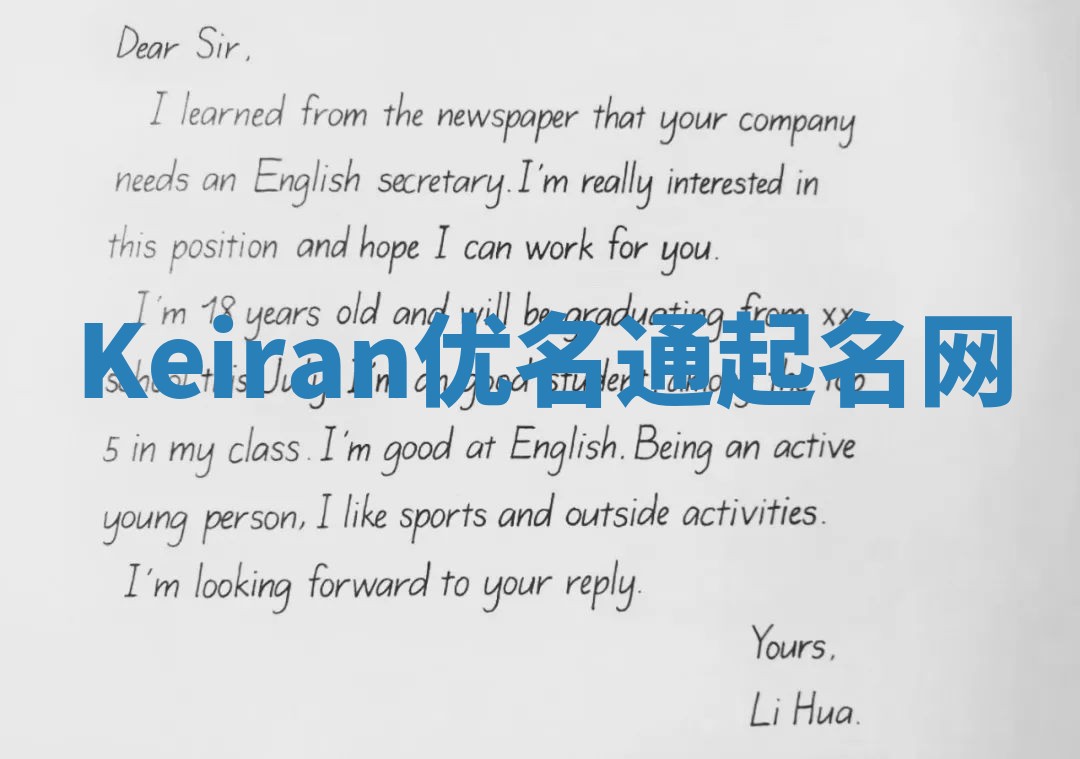 Dear Sir,
I learned from the newspaper that your company
needs an English secretary. I'm really interested in
this position and hope I can work for you.
I'm 18 years old and will be graduating from xx
Keiran优名通起名网
school this July. I'm an good student among the top
5 in my class. I'm good at English. Being an active
young person, I like sports and outside activities.
I'm looking forward to your reply.
Yours,
Li Hua.